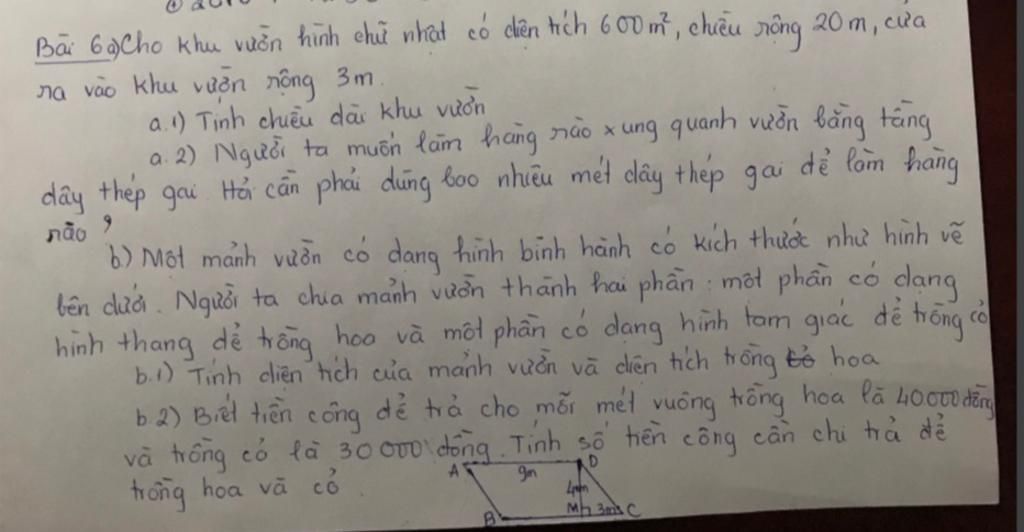 Bài 6 a) Cho khu vườn hình chữ nhật có diện tích 600m², chiều rộng 20m, cửa
ra vào khu vườn rộng 3m.
a.1) Tính chiều dài khu vườn
a.2) Người ta muốn làm hàng rào xung quanh vườn bằng tầng
dây thép gai. Hỏi cần phải dùng bao nhiêu mét dây thép gai để làm hàng
rào?
b) Một mảnh vườn có dạng hình bình hành có kích thước như hình vẽ
bên dưới. Người ta chia mảnh vườn thành hai phần: một phần có dạng
hình thang để trồng hoa và một phần có dạng hình tam giác để trồng cỏ
b.1) Tính diện tích của mảnh vườn và diện tích trồng hoa
b.2) Biết tiền công để trả cho mỗi mét vuông trồng hoa là 40000 đồng
và trồng cỏ là 30000 đồng. Tính số tiền công cần chi trả để
trồng hoa và cỏ.
A 9m D
4m
B M 3m C